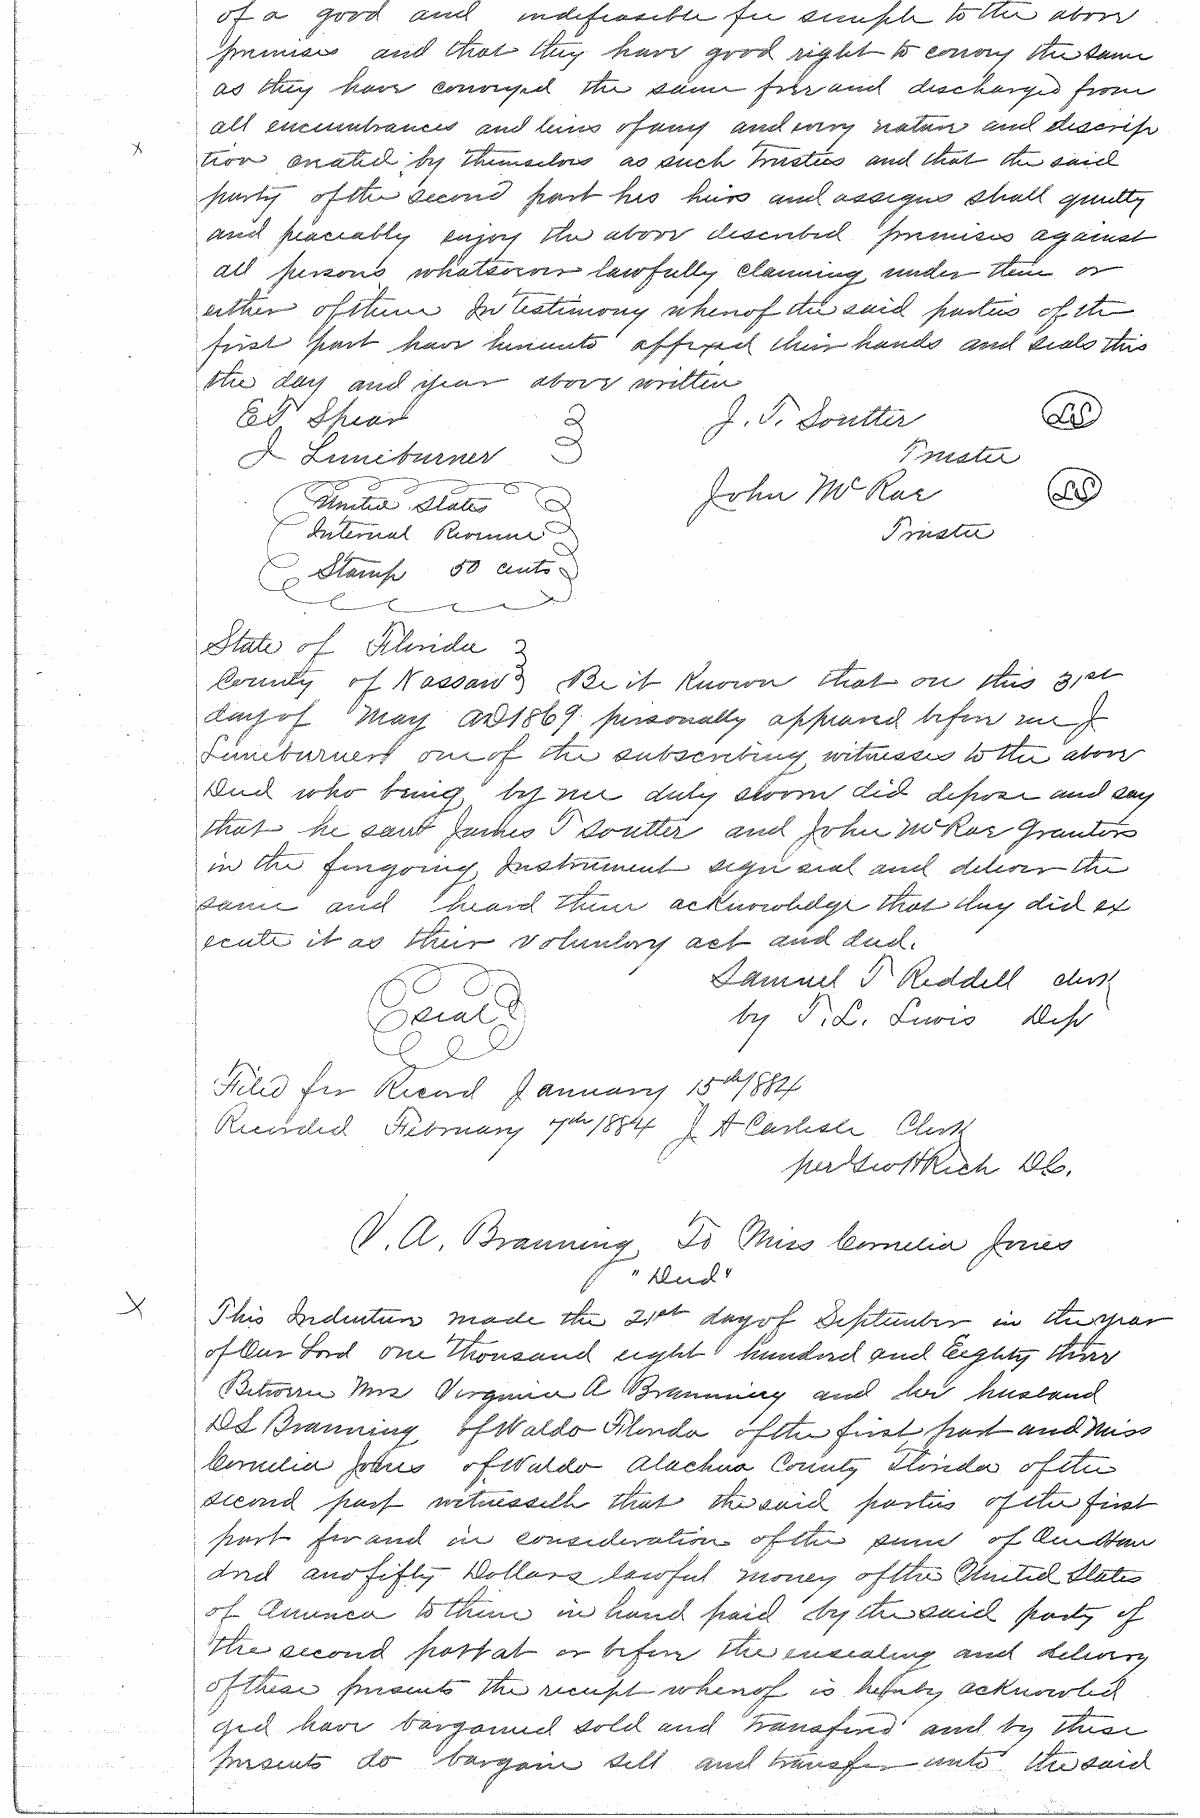 of a good and indefeasible fee simple to the above
premises and that they have good right to convey the same
as they have conveyed the same free and discharged from
all encumbrances and liens of any and every nature and descrip
tion created by themselves as such Trustees and that the said
party of the second part his heirs and assigns shall quietly
and peaceably enjoy the above described premises against
all persons whatsoever lawfully claiming under them or
either of them In Testimony whereof the said parties of the
first part have hereunto affixed their hands and seals this
the day and year above written
E T Spear J. T. Soutter LS
J Luneburner Trustee
United States John McRae LS
Internal Revenue Trustee
Stamp 50 cents
State of Florida
County of Nassau Be it Known that on this 31st
day of May AD 1869 personally appeared before me J
Luneburner one of the subscribing witnesses to the above
Deed who being by me duly sworn did depose and say
that he saw James T Soutter and John McRae Grantors
in the foregoing Instrument sign seal and deliver the
same and heard them acknowledge that they did ex
ecute it as their voluntary act and deed.
Seal Samuel T Reddell Clerk
by T. L. Lewis Dep
Filed for Record January 15th 1884
Recorded February 7th 1884 J A Carlisle Clerk
per Geo H Rich D C.
V. A. Branning To Miss Cornelia Jones
"Deed"
This Indenture made the 21st day of September in the year
of Our Lord one thousand eight hundred and Eighty three
Between Mrs Virginia A Branning and her husband
D S Branning of Waldo Florida of the first part and Miss
Cornelia Jones of Waldo Alachua County Florida of the
second part witnesseth that the said parties of the first
part for and in consideration of the sum of One Hun
dred and fifty Dollars lawful money of the United States
of America to them in hand paid by the said party of
the second part at or before the ensealing and delivery
of these presents the receipt whereof is hereby acknowled
ged have bargained sold and transferred and by these
presents do bargain sell and transfer unto the said